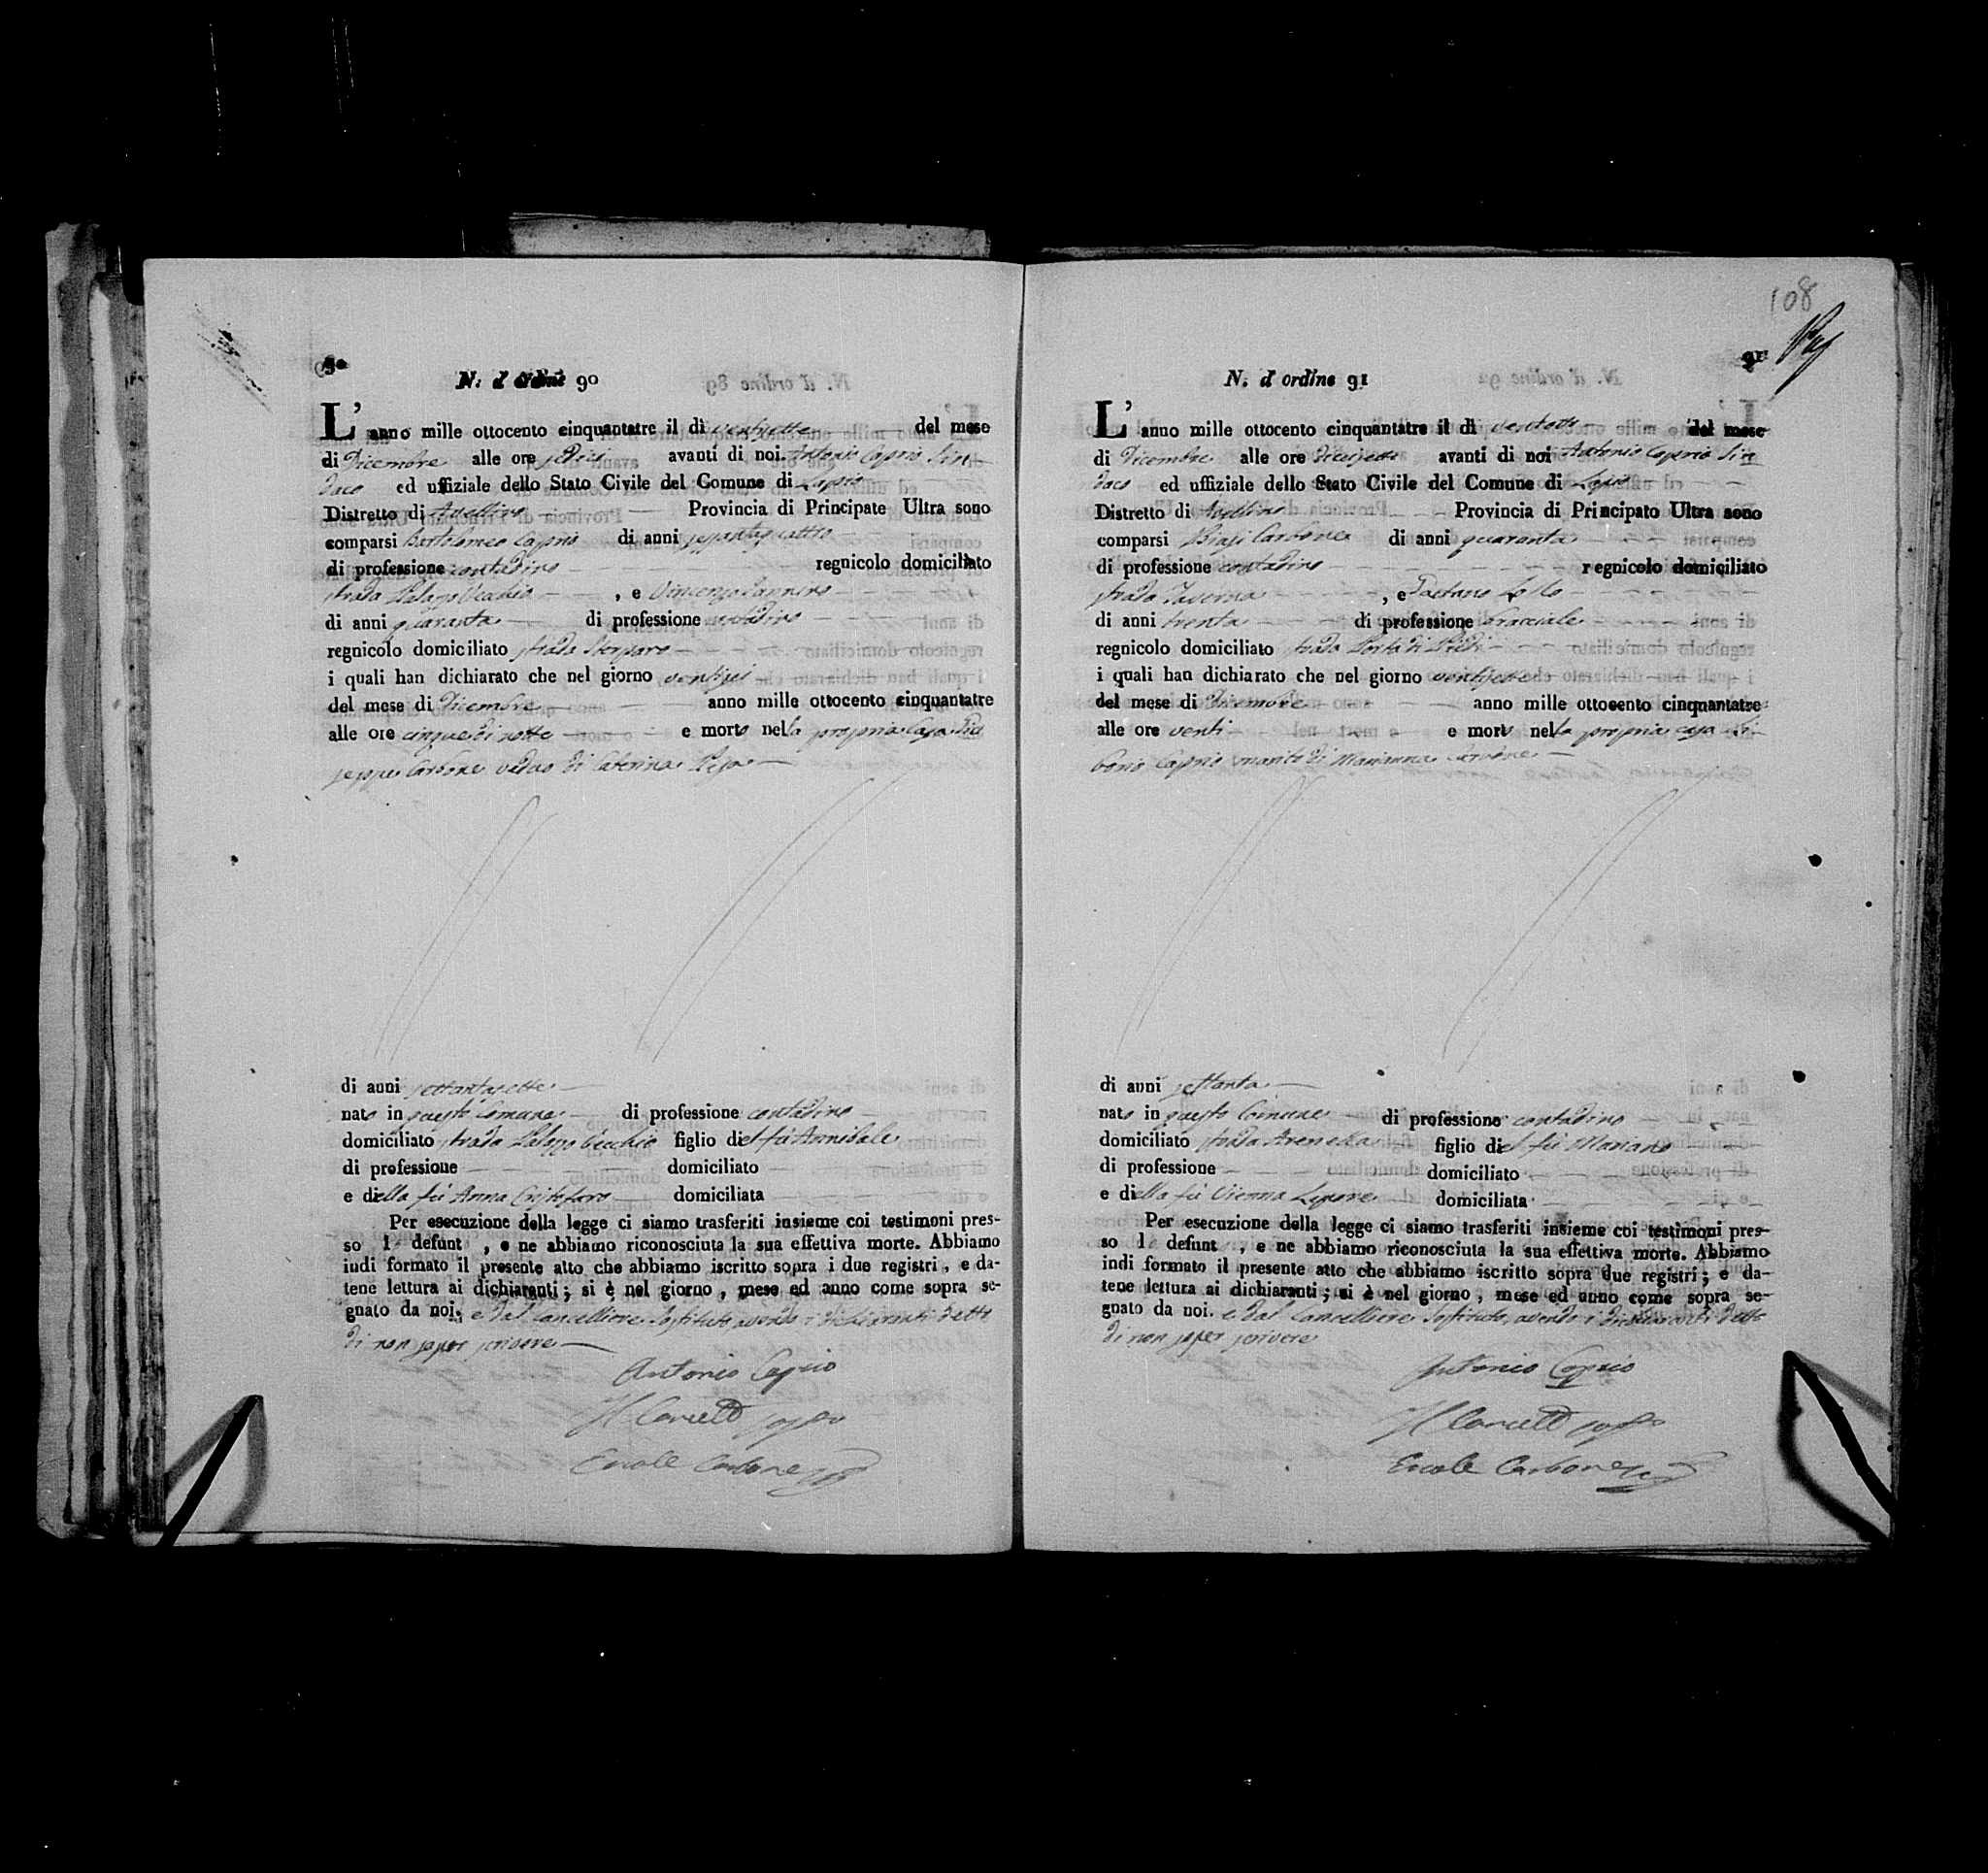 90
N. d' ordine 90
L' anno mille ottocento cinquantatre il dì ventisette del mese
di Dicembre alle ore sedici avanti di noi Antonio Caprio Sin-
daco ed uffiziale dello Stato Civile del Comune di Lapio
Distretto di Avellino Provincia di Principato Ultra sono
comparsi Bartolomeo Caprio di anni sessantaquattro
di professione contadino regnicolo domiciliato
strada Palazzo Vecchio , e Vincenzo
di anni quaranta di professione contadino
regnicolo domiciliato strada
i quali han dichiarato che nel giorno ventisei
del mese di Dicembre anno mille ottocento cinquantatre
alle ore cinque di notte e morto nella propria Casa Giu
seppe Carbone vedovo di Caterina
di anni settantasette
nato in questo Comune di professione contadino
domiciliato strada Palazzo Vecchio figlio del fù Annibale
di professione domiciliato
e della fù Anna Cristofaro domiciliata
Per esecuzione della legge ci siamo trasferiti insieme coi testimoni pres-
so l defunt , e ne abbiamo riconosciuta la sua effettiva morte. Abbiamo
indi formato il presente atto che abbiamo iscritto sopra i due registri, e da-
tene lettura ai dichiaranti; si è nel giorno, mese ed anno come sopra se-
gnato da noi. e dal Cancelliere Sostituto, avendo i dichiaranti detto
di non saper scrivere
Antonio Caprio
Il Cancell
Ercole Carbone
108
91
N. d' ordine 91
L' anno mille ottocento cinquantatre il dì ventotto del mese
di Dicembre alle ore diecisette avanti di noi Antonio Caprio Sin
daco ed uffiziale dello Stato Civile del Comune di Lapio
Distretto di Avellino Provincia di Principato Ultra sono
comparsi Biagi Carbone di anni quaranta
di professione contadino regnicolo domiciliato
strada Taverna , e Gaetano
di anni trenta di professione bracciale
regnicolo domiciliato strada Porta di
i quali han dichiarato che nel giorno ventisette
del mese di Dicembre anno mille ottocento cinquantatre
alle ore venti e morto nella propria casa Li-
borio Caprio marito di Marianna
di anni settanta
nato in questo Comune di professione contadino
domiciliato strada figlio del fù Mariano
di professione domiciliato
e della fù Vienna Lepore domiciliata
Per esecuzione della legge ci siamo trasferiti insieme coi testimoni pres-
so l defunt , e ne abbiamo riconosciuta la sua effettiva morte. Abbiamo
indi formato il presente atto che abbiamo iscritto sopra due registri; e da-
tene lettura ai dichiaranti; si è nel giorno, mese ed anno come sopra se-
gnato da noi. e dal Cancelliere Sostituto, avendo i dichiaranti detto
di non saper scrivere
Antonio Caprio
Il Cancell
Ercole Carbone